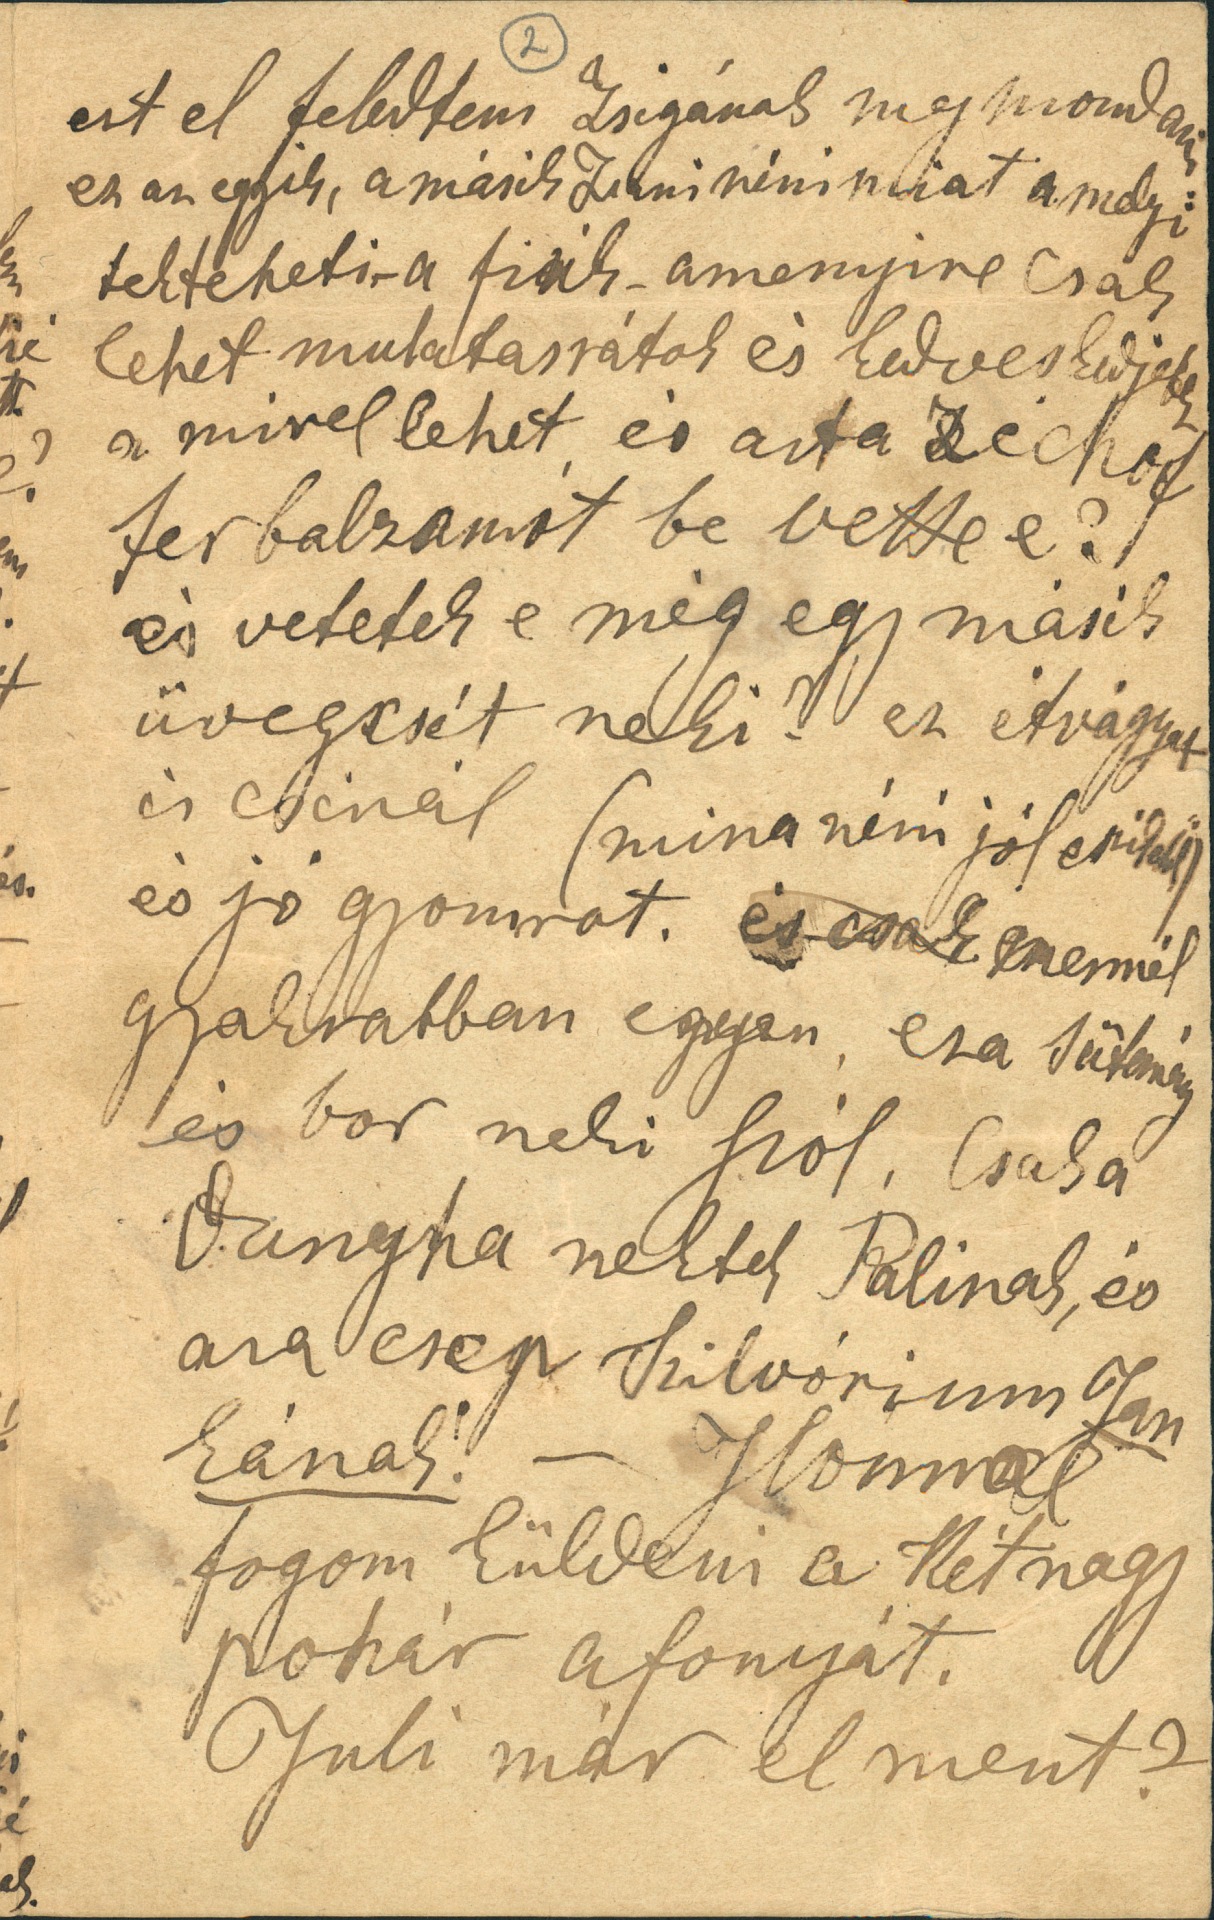 2
ezt el feledtem a Zsigának megmondani
ez az egyik, a másik Zsuni néni miat a melyi:
tekteheti-a fiúk - amenyire csak
lehet mulatasrátok és kedveskedjetek
a mivel lehet, és azt a
fer balzamót be vette e?
és vetetek e még egy másik
üvegcsét neki? ez étvágyat
is csinál (mina néni jól
és jó gyomrot. és csak enermél
gyakrabban egyen, eza sütemény
és bor neki szól, Csak a
Dungha nektek Palinak, és
aza csep Szilvórium Jan
kának! — Ilonnal
fogom küldeni a két nagy
pohár afonyát.
Juli már el ment?